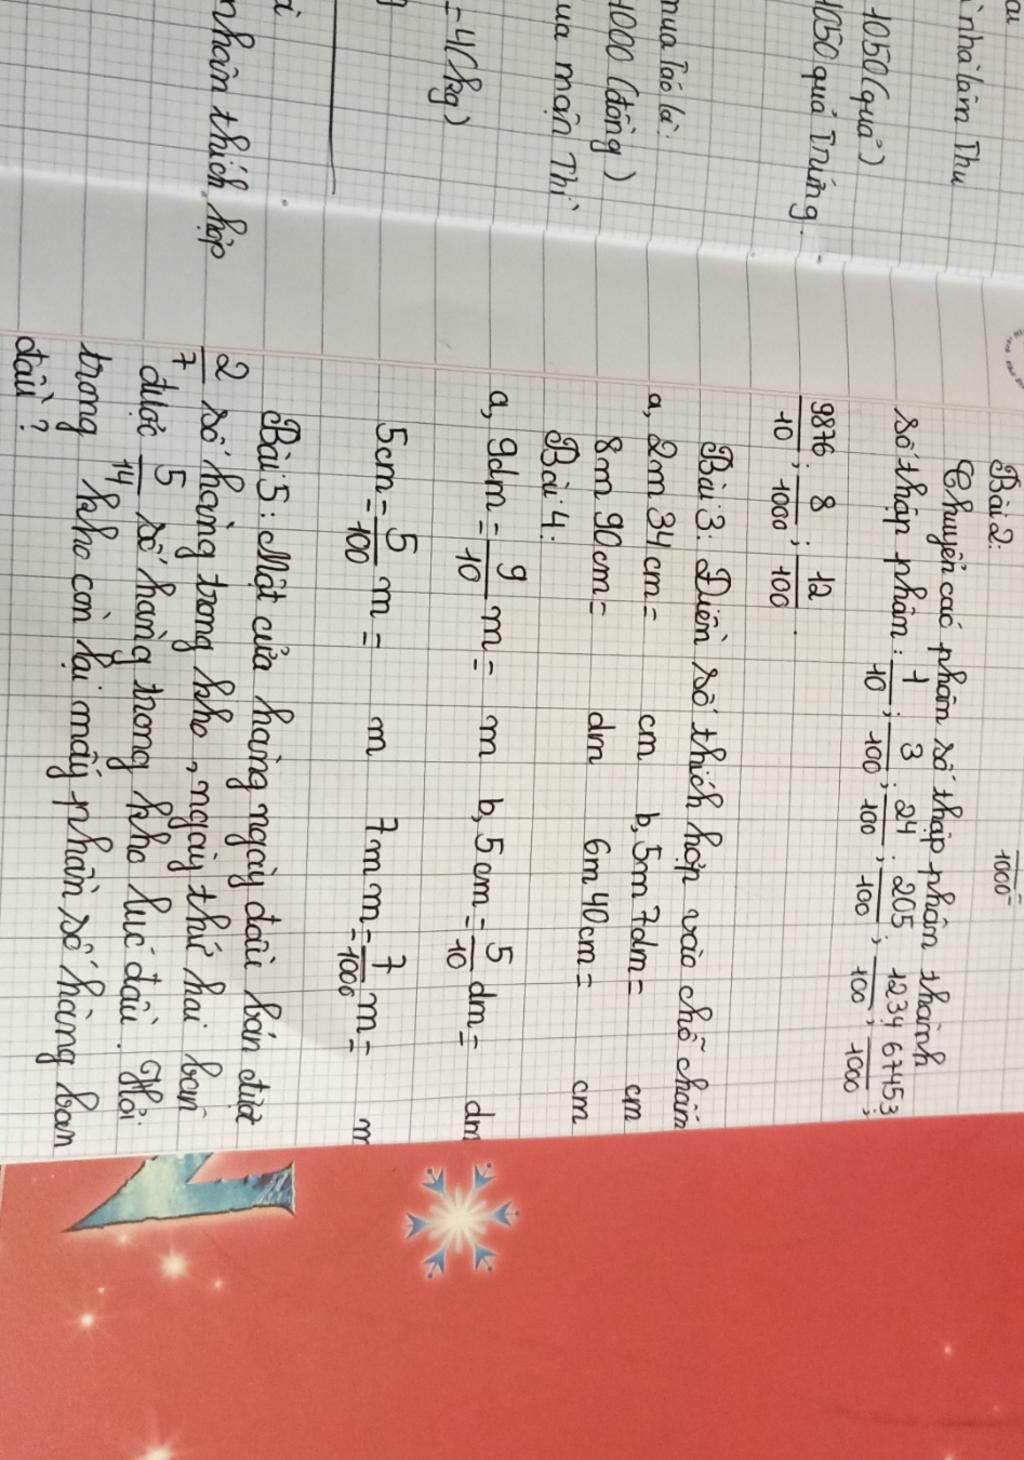 nhà làm Thu
1050 (quả)
1050 quả trứng.
mua Táo là:
1000 (đồng)
ua mận Thì
= 4 (kg)
nhân thích hợp
1000
Bài 2:
Chuyển các phân số thập phân thành
số thập phân: 1/10; 3/100; 24/100; 205/100; 1234/100; 67453/1000;
9876/10; 8/1000; 12/100.
Bài 3: Điền số thích hợp vào chỗ chấm
a, 2m 34cm = cm b, 5m 7dm = cm
8m 90cm = dm 6m 40cm = cm
Bài 4:
a, 9dm = 9/10 m = m b, 5cm = 5/10 dm = dm
5cm = 5/100 m = m 7mm = 7/1000 m = m
Bài 5: Một cửa hàng ngày đầu bán được
2/7 số hàng trong kho, ngày thứ hai bán
được 5/14 số hàng trong kho lúc đầu. Hỏi
trong kho còn lại mấy phần số hàng ban
đầu?